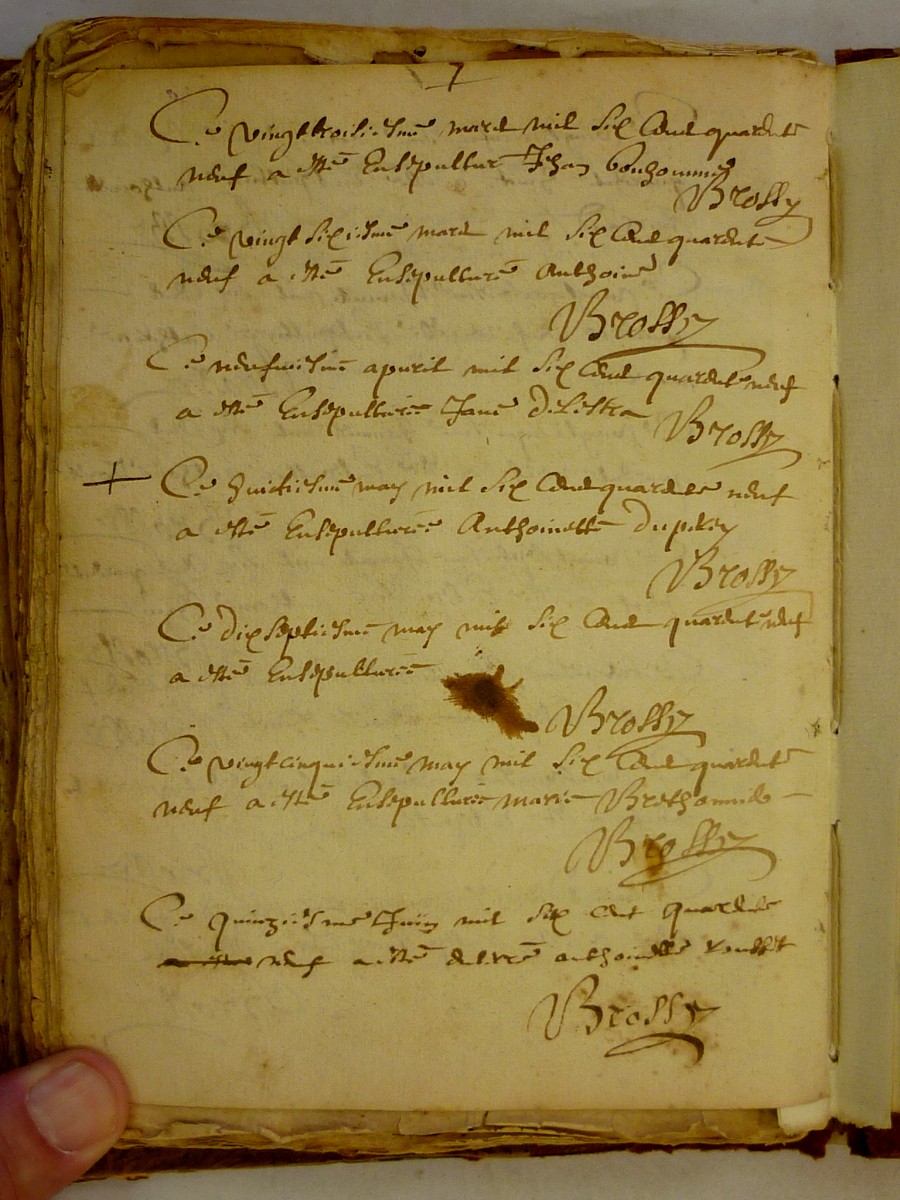 7
Ce vingttroisiesme mars mil six cent quarente
neuf a esté ensepulturé Jehan bonhomme
Brossy
Ce vingt sixiesme mars mil six cent quarente
neuf a esté ensepulturé Anthoine
Brossy
Ce neufviesme apvril mil six cent quarente neuf
a esté ensepulturée Jane
Brossy
Ce huictiesme may mil six cent quarente neuf
a esté ensepulturée Anthoinette
Brossy
Ce dixseptiesme may mil six cent quarente neuf
a esté ensepulturée
Brossy
Ce vingtcinquiesme may mil six cent quarente
neuf a esté ensepulturée marie
Brossy
Ce quinziesme Juin mil six cent quarente
neuf a esté anthoinette
Brossy